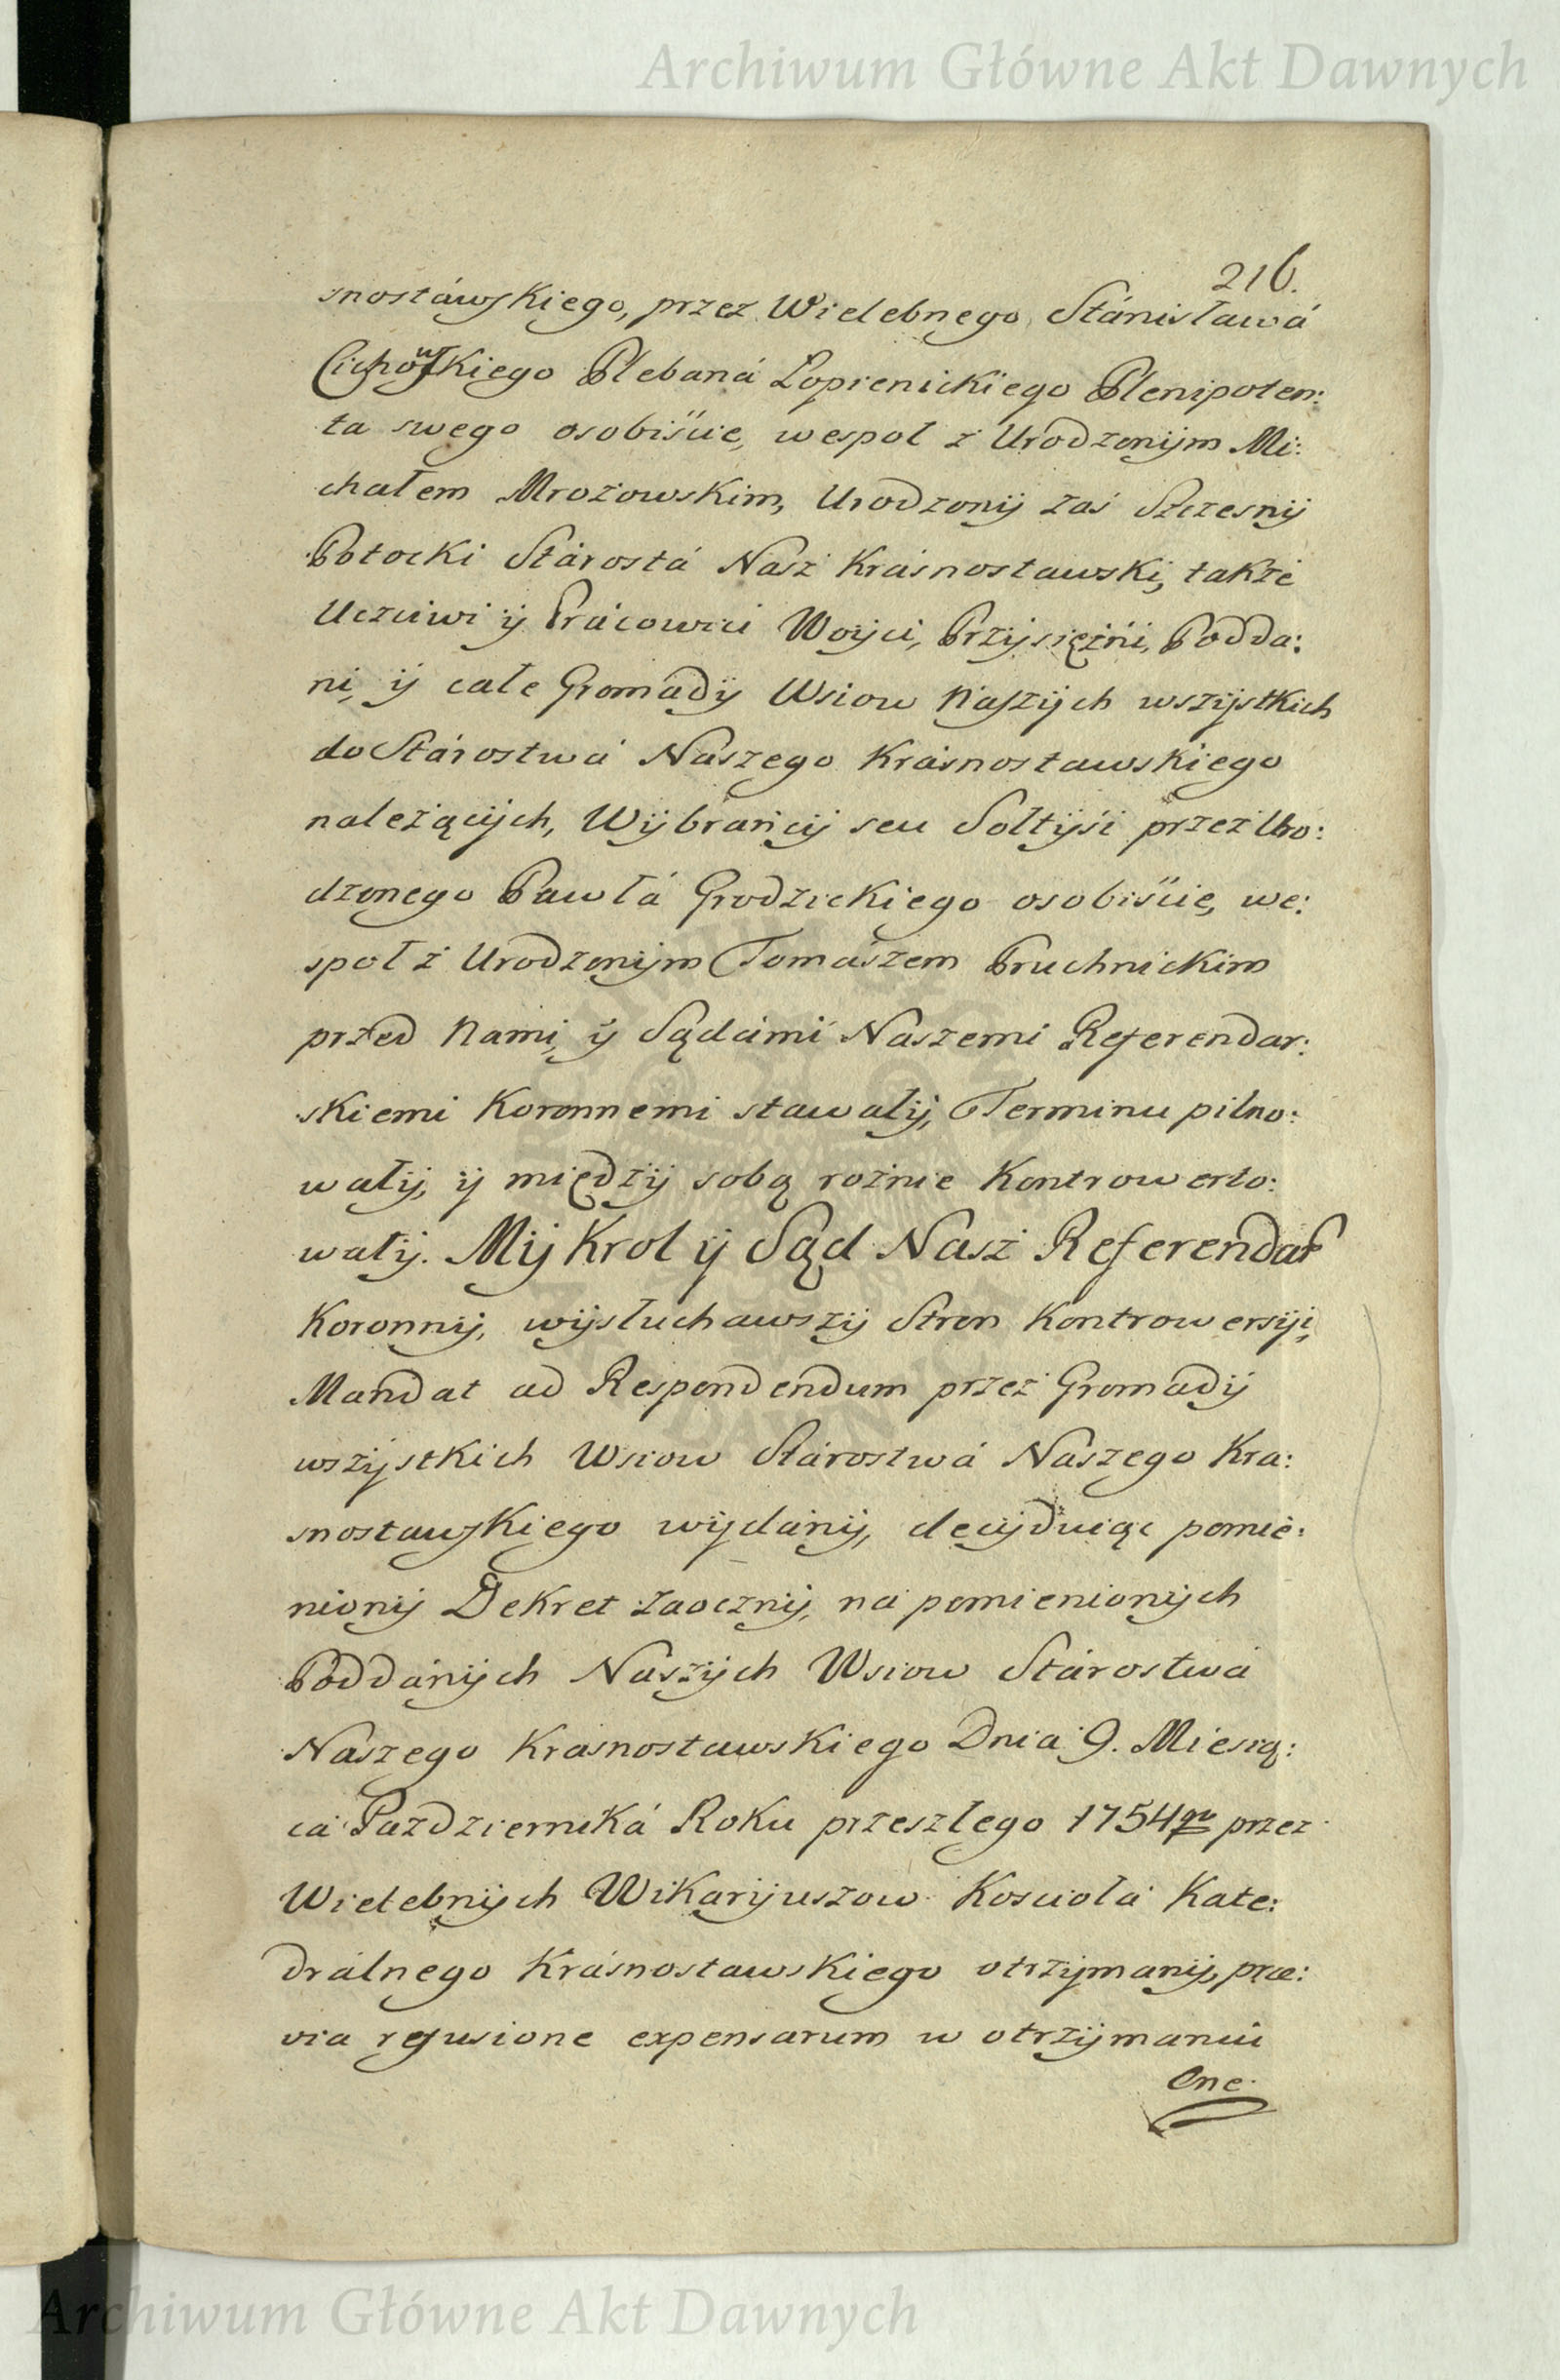 Archiwum Główne Akt Dawnych
216.
snostáwskiego, przez Wielebnego Stánisławá
Cichowskiego Plebaná Łopienickiego Plenipoten:
ta swego osobiście, wespoł z Urodzonym Mi:
chałem Mrozowskim, Urodzony zaś Szczesny
Potocki Stárostá Nasz Krásnostawski, także
Uczciwi y Prácowici Woyci, Przysiężni, Podda:
ni, y całe Gromady Wsiow Naszych wszystkich
do Stárostwá Naszego Krásnostawskiego
należących, Wybrańcy seu Sołtyśi przez Uro:
dzonego Pawłá Grodzickiego osobiście, we:
społ z Urodzonym Tomaszem Pruchnickim
przed Nami, y Sądámi Naszemi Referendar:
skiemi Koronnemi stawały, Terminu pilno:
wały, y między sobą rożnie Kontrowerto:
wały. My Krol y Sąd Nasz Referendar
Koronny, wysłuchawszy Stron Kontrowersyi,
Mandat ad Respondendum przez Gromady
wszystkich Wsiow Stárostwá Naszego Kra:
snostawskiego wydány, decyduiąc pomie:
niony Dekret zaoczny, na pomienionych
Poddánych Naszych Wsiow Stárostwá
Naszego Krasnostawskiego Dnia 9. Miesią:
ca Pazdziernika Roku przeszłego 1754go przez
Wielebnych Wikaryuszow Kościoła Kate:
drálnego Krásnostawskiego otrzymany, præ:
via refusione expensarum w otrzymaniu
One
Archiwum Główne Akt Dawnych